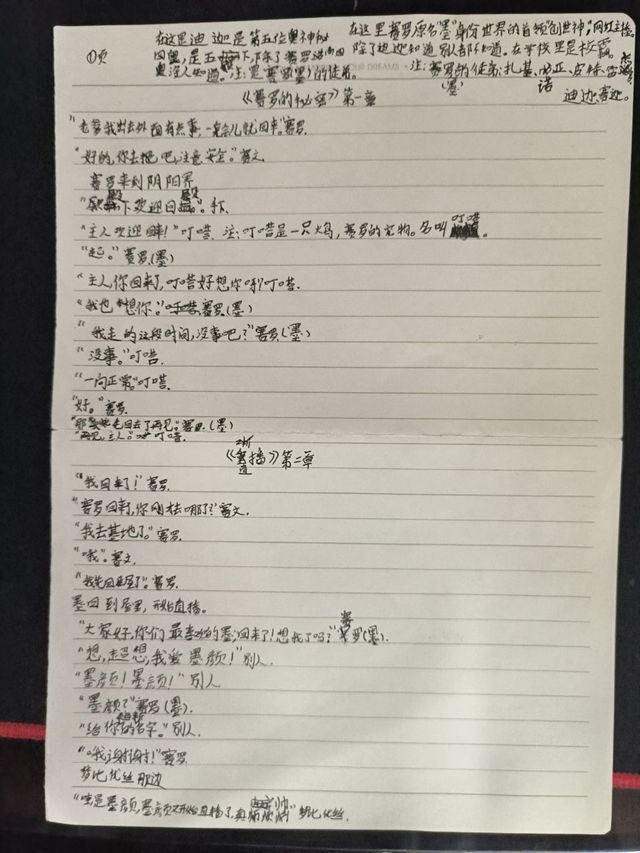 ①页
在这里迪迦是第五位奥神 在这里赛罗原名"墨"身份世界的首领"创世神",网红主播。
奥,是五 下,除了赛罗 除了迪迦知道别都不知道。在学校里是校霸。
奥没人知道。注:是赛罗(墨)的徒弟。 注:赛罗的徒弟:扎基、 正、皮特、
(墨) 诺 迪迦、
《赛罗的秘密》第一章
"老爹我出去外面有点事,一会儿就回来"赛罗.
"好的,你去 吧,注意安全。"赛文.
赛罗来到阴阳界
" 殿下欢迎回殿。"手下.
"主人欢迎回来!"叮嗒. 注:叮嗒是一只火鸟,赛罗的宠物。名叫叮嗒。
"起。"赛罗.(墨)
"主人,你回来了,叮嗒好想你呀!"叮嗒.
"我也想你。"赛罗.(墨)
"我走的这段时间,没事吧?"赛罗.(墨)
"没事。"叮嗒.
"一向正常。"叮嗒.
"好。"赛罗.
"那 回去了再见。"赛罗.(墨)
"再见,主人。"叮嗒.
《直播》第二章
"我回来了!"赛罗.
"赛罗回来了,你刚才去哪了?"赛文.
"我去基地了。"赛罗.
"哦"。赛文.
"我先回屋了"。赛罗.
墨回到屋里,开始直播。
"大家好,你们最喜欢的墨,回来了!想我了吗?"赛罗(墨).
"想,超想,我爱墨颜!"别人.
"墨颜!墨颜!"别人
"墨颜?"赛罗(墨).
"给你 的名字。"别人.
"哦,谢谢!"赛罗.
梦比优丝那边
"哇,是墨颜,墨颜又开始直播了,真 帅"梦比优丝.